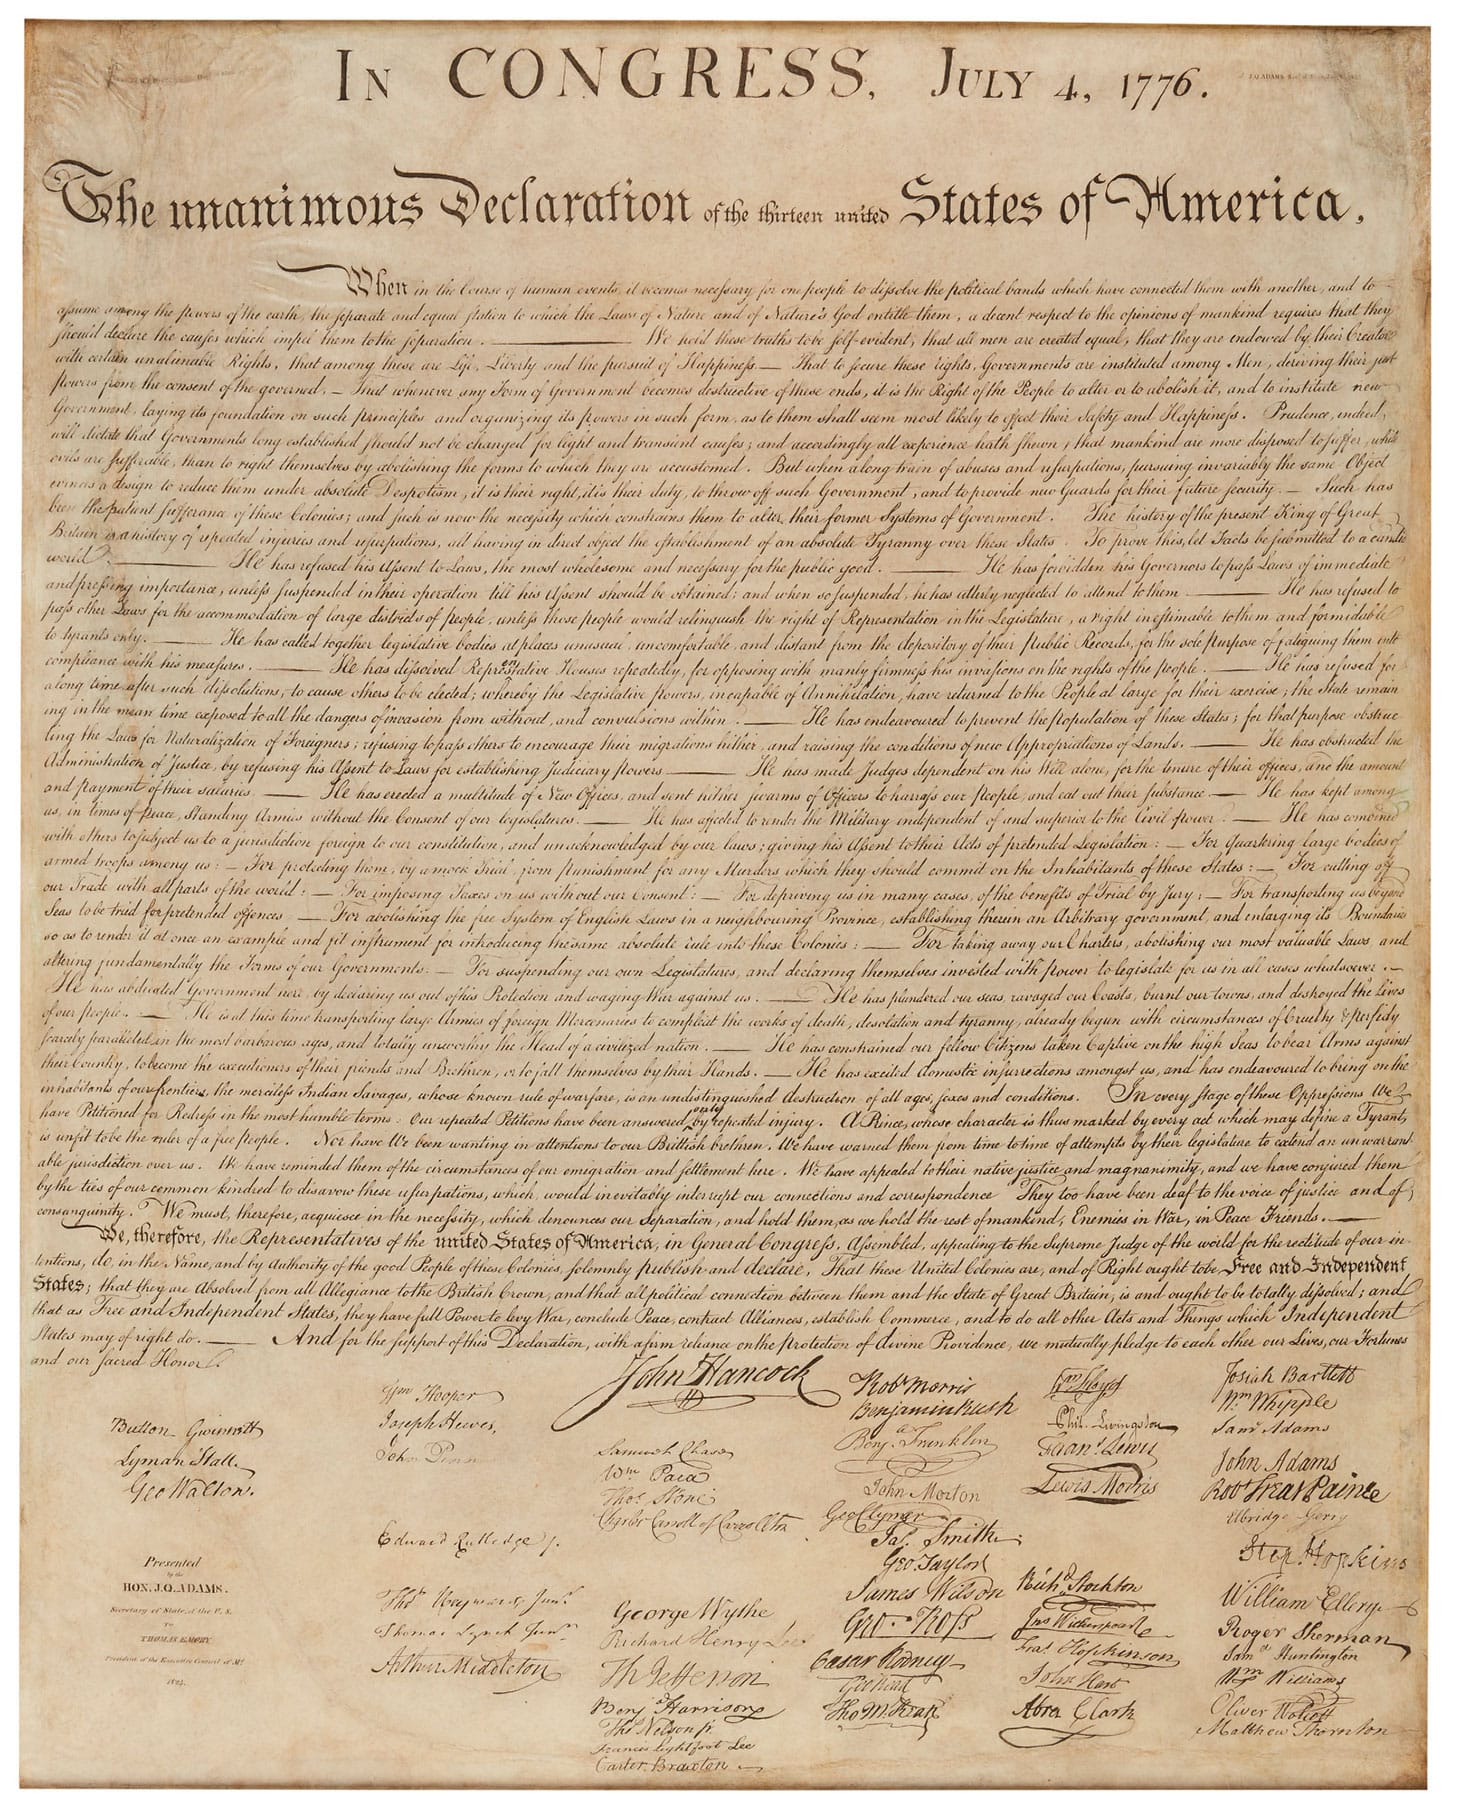 IN CONGRESS, JULY 4, 1776.
J.Q. ADAMS
The unanimous Declaration of the thirteen united States of America,
When in the Course of human events, it becomes necessary for one people to dissolve the political bands which have connected them with another, and to
assume among the powers of the earth, the separate and equal station to which the Laws of Nature and of Nature's God entitle them, a decent respect to the opinions of mankind requires that they
should declare the causes which impel them to the separation. — We hold these truths to be self-evident, that all men are created equal, that they are endowed by their Creator
with certain unalienable Rights, that among these are Life, Liberty and the pursuit of Happiness — That to secure these rights, Governments are instituted among Men, deriving their just
powers from the consent of the governed, — That whenever any Form of Government becomes destructive of these ends, it is the Right of the People to alter or to abolish it, and to institute new
Government, laying its foundation on such principles and organizing its powers in such form, as to them shall seem most likely to effect their Safety and Happiness. Prudence, indeed,
will dictate that Governments long established should not be changed for light and transient causes; and accordingly all experience hath shewn, that mankind are more disposed to suffer, while
evils are sufferable, than to right themselves by abolishing the forms to which they are accustomed. But when a long train of abuses and usurpations, pursuing invariably the same Object
evinces a design to reduce them under absolute Despotism, it is their right, it is their duty, to throw off such Government, and to provide new Guards for their future security. — Such has
been the patient sufferance of these Colonies; and such is now the necessity which constrains them to alter their former Systems of Government. The history of the present King of Great
Britain is a history of repeated injuries and usurpations, all having in direct object the establishment of an absolute Tyranny over these States. To prove this, let Facts be submitted to a candid
world. — He has refused his Assent to Laws, the most wholesome and necessary for the public good. — He has forbidden his Governors to pass Laws of immediate
and pressing importance, unless suspended in their operation till his Assent should be obtained; and when so suspended, he has utterly neglected to attend to them — He has refused to
pass other Laws for the accommodation of large districts of people, unless those people would relinquish the right of Representation in the Legislature, a right inestimable to them and formidable
to tyrants only. — He has called together legislative bodies at places unusual, uncomfortable, and distant from the depository of their Public Records, for the sole purpose of fatiguing them into
compliance with his measures. — He has dissolved Representative Houses repeatedly, for opposing with manly firmness his invasions on the rights of the people. — He has refused for
a long time, after such dissolutions, to cause others to be elected; whereby the Legislative powers, incapable of Annihilation, have returned to the People at large for their exercise; the State remain
ing in the mean time exposed to all the dangers of invasion from without, and convulsions within. — He has endeavoured to prevent the population of these States; for that purpose obstruc
ting the Laws for Naturalization of Foreigners; refusing to pass others to encourage their migrations hither, and raising the conditions of new Appropriations of Lands. — He has obstructed the
Administration of Justice, by refusing his Assent to Laws for establishing Judiciary powers — He has made Judges dependent on his Will alone, for the tenure of their offices, and the amount
and payment of their salaries. — He has erected a multitude of New Offices, and sent hither swarms of Officers to harrass our People, and eat out their substance. — He has kept among
us, in times of peace, Standing Armies without the Consent of our legislatures. — He has affected to render the Military independent of and superior to the Civil power. — He has combined
with others to subject us to a jurisdiction foreign to our constitution, and unacknowledged by our laws; giving his Assent to their Acts of pretended Legislation: — For Quartering large bodies of
armed troops among us: — For protecting them, by a mock Trial, from punishment for any Murders which they should commit on the Inhabitants of these States: — For cutting off
our Trade with all parts of the world: — For imposing Taxes on us without our Consent: — For depriving us in many cases, of the benefits of Trial by Jury; — For transporting us beyond
Seas to be tried for pretended offences — For abolishing the free System of English Laws in a neighbouring Province, establishing therein an Arbitrary government, and enlarging its Boundaries
so as to render it at once an example and fit instrument for introducing the same absolute rule into these Colonies: — For taking away our Charters, abolishing our most valuable Laws, and
altering fundamentally the Forms of our Governments: — For suspending our own Legislatures, and declaring themselves invested with power to legislate for us in all cases whatsoever. —
He has abdicated Government here, by declaring us out of his Protection and waging War against us. — He has plundered our seas, ravaged our Coasts, burnt our towns, and destroyed the Lives
of our people. — He is at this time transporting large Armies of foreign Mercenaries to compleat the works of death, desolation and tyranny, already begun with circumstances of Cruelty & perfidy
scarcely paralleled in the most barbarous ages, and totally unworthy the Head of a civilized nation. — He has constrained our fellow Citizens taken Captive on the high Seas to bear Arms against
their Country, to become the executioners of their friends and Brethren, or to fall themselves by their Hands. — He has excited domestic insurrections amongst us, and has endeavoured to bring on the
inhabitants of our frontiers, the merciless Indian Savages, whose known rule of warfare, is an undistinguished destruction of all ages, sexes and conditions. In every stage of these Oppressions We
have Petitioned for Redress in the most humble terms: Our repeated Petitions have been answered only by repeated injury. A Prince, whose character is thus marked by every act which may define a Tyrant,
is unfit to be the ruler of a free people. Nor have We been wanting in attentions to our Brittish brethren. We have warned them from time to time of attempts by their legislature to extend an unwarrant
able jurisdiction over us. We have reminded them of the circumstances of our emigration and settlement here. We have appealed to their native justice and magnanimity, and we have conjured them
by the ties of our common kindred to disavow these usurpations, which, would inevitably interrupt our connections and correspondence They too have been deaf to the voice of justice and of
consanguinity. We must, therefore, acquiesce in the necessity, which denounces our Separation, and hold them, as we hold the rest of mankind, Enemies in War, in Peace Friends. —
We, therefore, the Representatives of the united States of America, in General Congress, Assembled, appealing to the Supreme Judge of the world for the rectitude of our in-
tentions, do, in the Name, and by Authority of the good People of these Colonies, solemnly publish and declare, That these United Colonies are, and of Right ought to be Free and Independent
States; that they are Absolved from all Allegiance to the British Crown, and that all political connection between them and the State of Great Britain, is and ought to be totally dissolved; and
that as Free and Independent States, they have full Power to levy War, conclude Peace, contract Alliances, establish Commerce, and to do all other Acts and Things which Independent
States may of right do. — And for the support of this Declaration, with a firm reliance on the protection of divine Providence, we mutually pledge to each other our Lives, our Fortunes
and our sacred Honor.
Button Gwinnett
Lyman Hall.
Geo Walton.
Presented
by the
HON. J.Q. ADAMS.
Secretary of State of the U.S.
TO
THOMAS EMORY
President of the Executive Council of Md
1824.
Wm Hooper
Joseph Hewes,
John Penn
Edward Rutledge /.
Thos Heyward Junr.
Thomas Lynch Junr.
Arthur Middleton
John Hancock
Samuel Chase
Wm Paca
Thos Stone
Charles Carroll of Carrollton
George Wythe
Richard Henry Lee
Th Jefferson
Benj Harrison
Thos Nelson jr.
Francis Lightfoot Lee
Carter Braxton
Robt Morris
Benjamin Rush
Benja Franklin
John Morton
Geo Clymer
Jas. Smith.
Geo. Taylor
James Wilson
Geo. Ross
Caesar Rodney
Geo Read
Tho M:Kean
Wm Floyd
Phil. Livingston
Frans. Lewis
Lewis Morris
Richd. Stockton
Jno Witherspoon
Fras. Hopkinson
John Hart
Abra Clark
Josiah Bartlett
Wm Whipple
Saml Adams
John Adams
Robt Treat Paine
Elbridge Gerry
Step. Hopkins
William Ellery
Roger Sherman
Saml Huntington
Wm Williams
Oliver Wolcott
Matthew Thornton